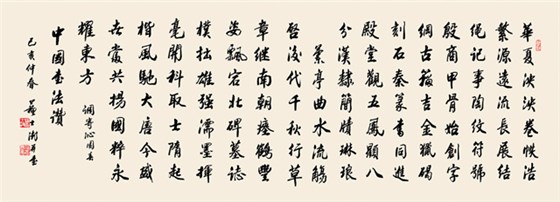 華夏泱泱卷帙浩
繁源遠流長展結
绳記事陶紋符號
殷商甲骨始創字
綱古籀吉金獵碣
刻石秦篆書同進
殿堂觀五鳳顯八
分漢隸簡牘琳琅
蘭亭曲水流觴
啓後代千秋行草
章継南朝瘞鶴豐
姿飄宕北碑墓誌
樸拙雄强濡墨揮
毫開科取士隋起
楷風馳大唐今盛
世當共揚國粹永
耀東方 調寄沁園春
中國書法讚
己亥仲春 蘇士澍并書